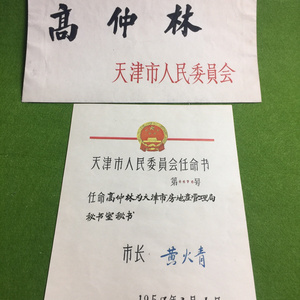 高仲林
天津市人民委員会
天津市人民委員会任命书
任命高仲林为天津市房地产管理局
秘书室秘书
市长 黄火青